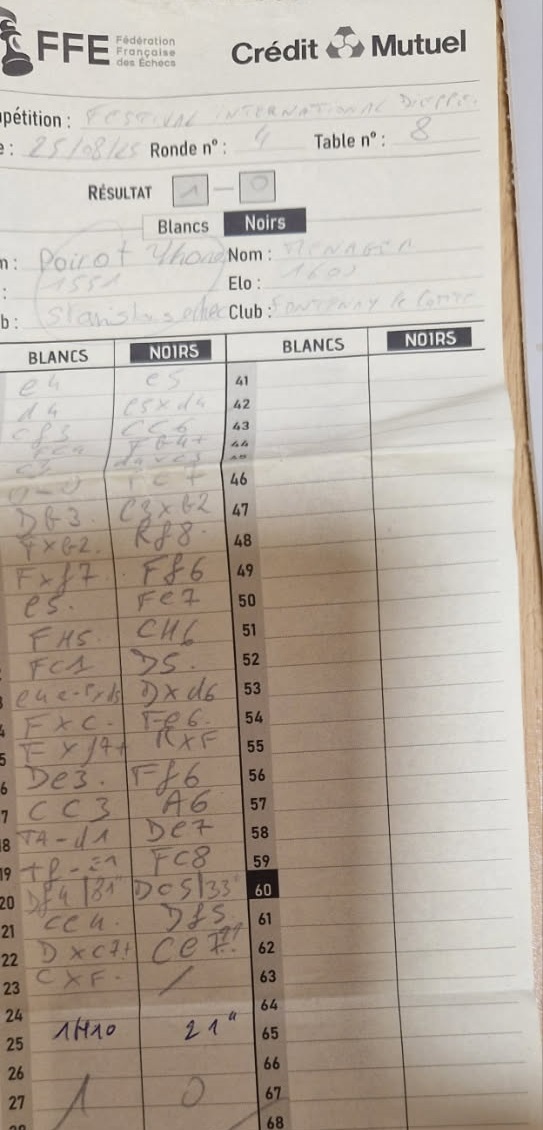 FFE Fédération Française des Échecs Crédit Mutuel
pétition : FESTIVAL INTERNATIONAL DIEPPE.
e : 25/08/25 Ronde n° : 4 Table n° : 8
RÉSULTAT 1 — 0
Blancs Noirs
m : Poirot Nom : MENAGER
: 1551 Elo : 1600
b : Club : FONTENAY le Comte
BLANCS NOIRS BLANCS NOIRS
e4 e5 41
d4 e5xd4 42
Cf3 CC6 43
FC4 FB4+ 44
C3 d4xc3
0-0 FC7 46
DB3 C3xB2 47
FxB2. Rf8. 48
Fxf7. Ff6 49
e5. Fe7 50
FH5. CH6 51
FC1 D5. 52
Dxd6 53
4 FxC. Fe6. 54
5 Fxf7+ RxF 55
6 De3. Ff6 56
7 CC3 A6 57
18 TA-d1 De7 58
19 FC8 59
20 Df4 |31" Dc5|33" 60
21 CC4. Df5. 61
22 Dxc7+ Ce7?! 62
23 CxF. / 63
24 64
25 1H10 21" 65
26 66
27 1 0 67
68